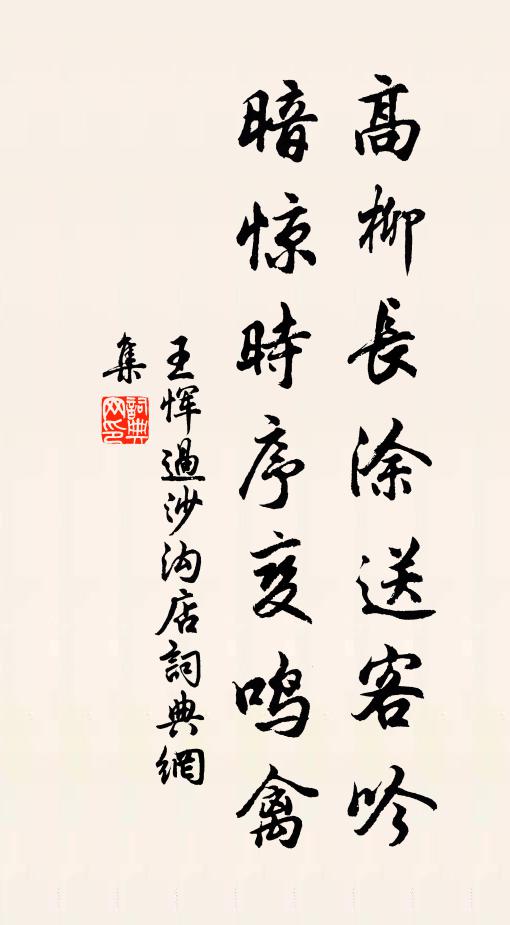 高柳長涂送客吟
暗惊時序变鸣禽
王恽過沙沟店詞典網
集
詞典网印